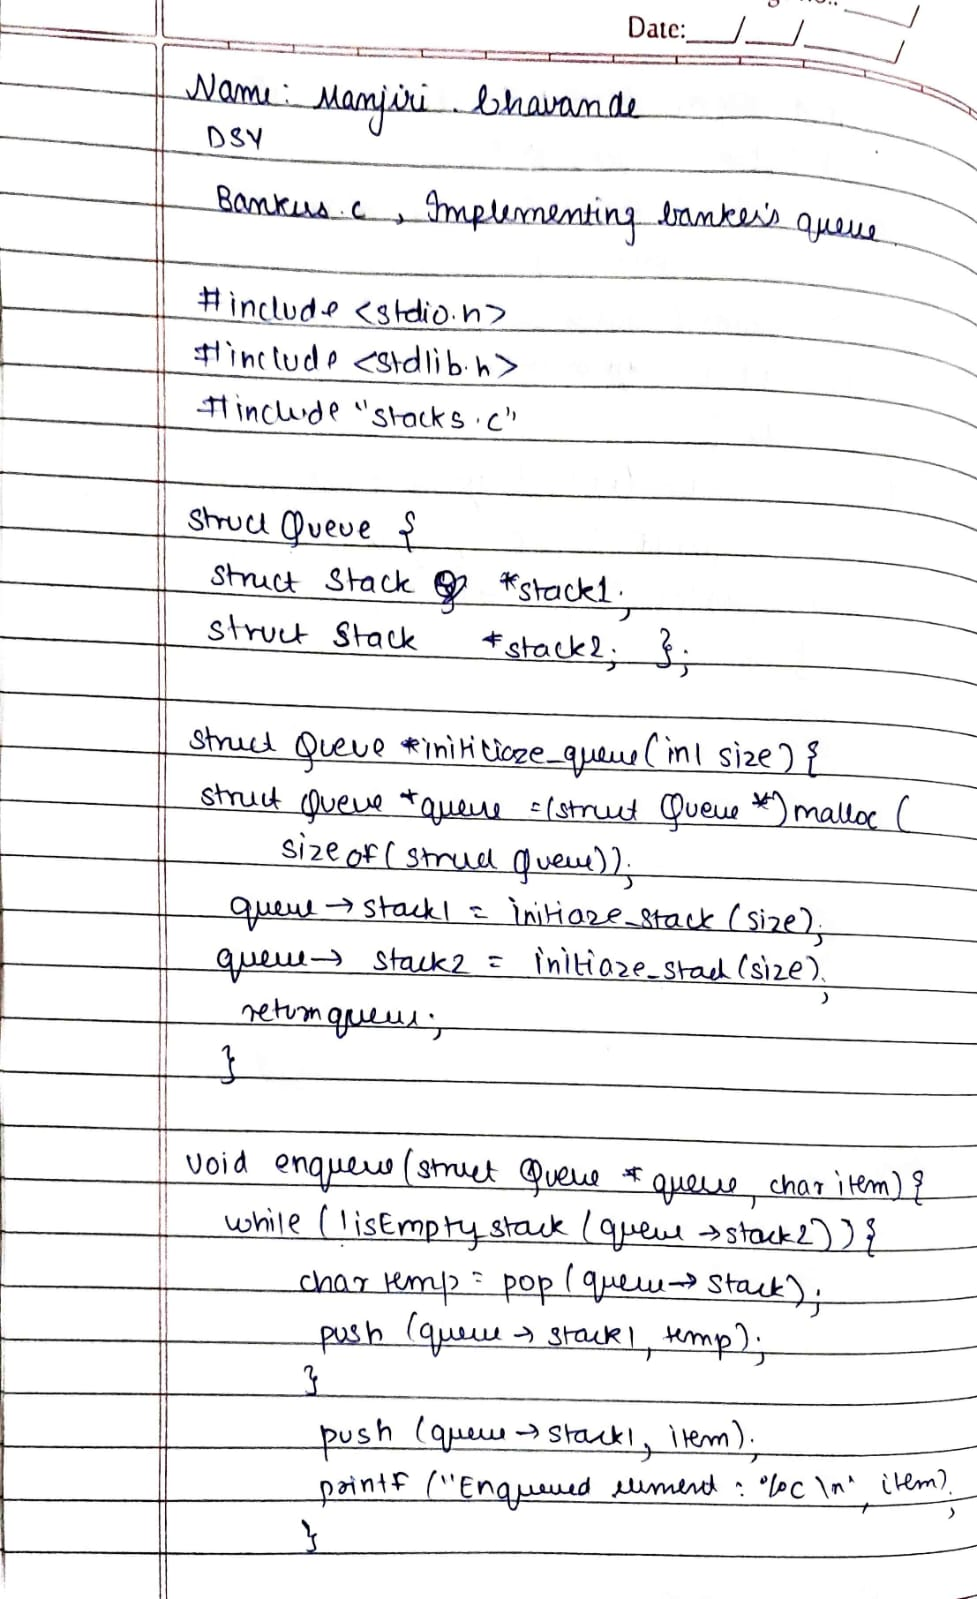 Date: __/__/____
Name: Manjiri . Chavande
DSY
Bankers.c , Implementing banker's queue.
#include <stdio.h>
#include <stdlib.h>
#include "stacks.c"
struct Queue {
struct Stack *stack1;
struct Stack *stack2; };
struct Queue *initiliaze_queue(int size) {
struct Queue *queue =(struct Queue *) malloc (
sizeof(struct queue));
queue → stack1 = initiaze_stack (size);
queue → stack2 = initiaze_stack (size);
return queue;
}
void enqueue (struct Queue * queue, char item) {
while (!isEmpty stack (queue → stack2)) {
char temp = pop (queue → stack);
push (queue → stack1, temp);
}
push (queue → stack1, item);
printf ("Enqueued element : %c \n", item);
}